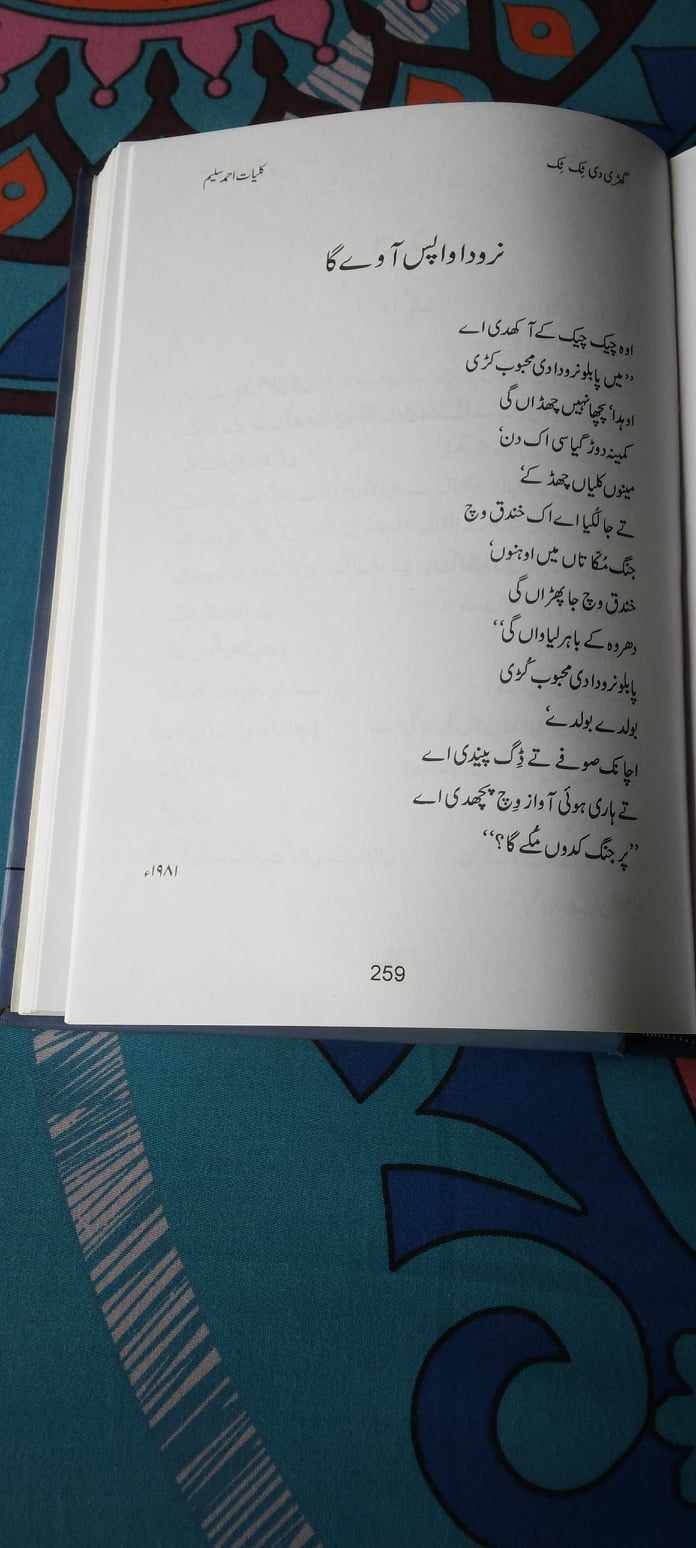 گھڑی دی ٹِک ٹِک
کلیات احمد سلیم
نرودا واپس آوے گا
اوہ چیک چیک کے آکھدی اے
”میں پابلو نرودا دی محبوب کڑی
اوہدا‘ پچھا نہیں چھڈاں گی
کمینہ دوڑ گیا سی اک دن‘
مینوں کلیاں چھڈ کے‘
تے جا لُکیا اے اک خندق وچ
جنگ مُکّا تاں میں اوہنوں‘
خندق وچ جا پھڑاں گی
دھروہ کے باہر لیاواں گی“
پابلو نرودا دی محبوب کُڑی
بولدے بولدے‘
اچانک صوفے تے ڈِگ پیندی اے
تے ہاری ہوئی آواز وِچ پچھدی اے
”پر جنگ کدوں مُکے گا؟“
۱۹۸۱ء
259